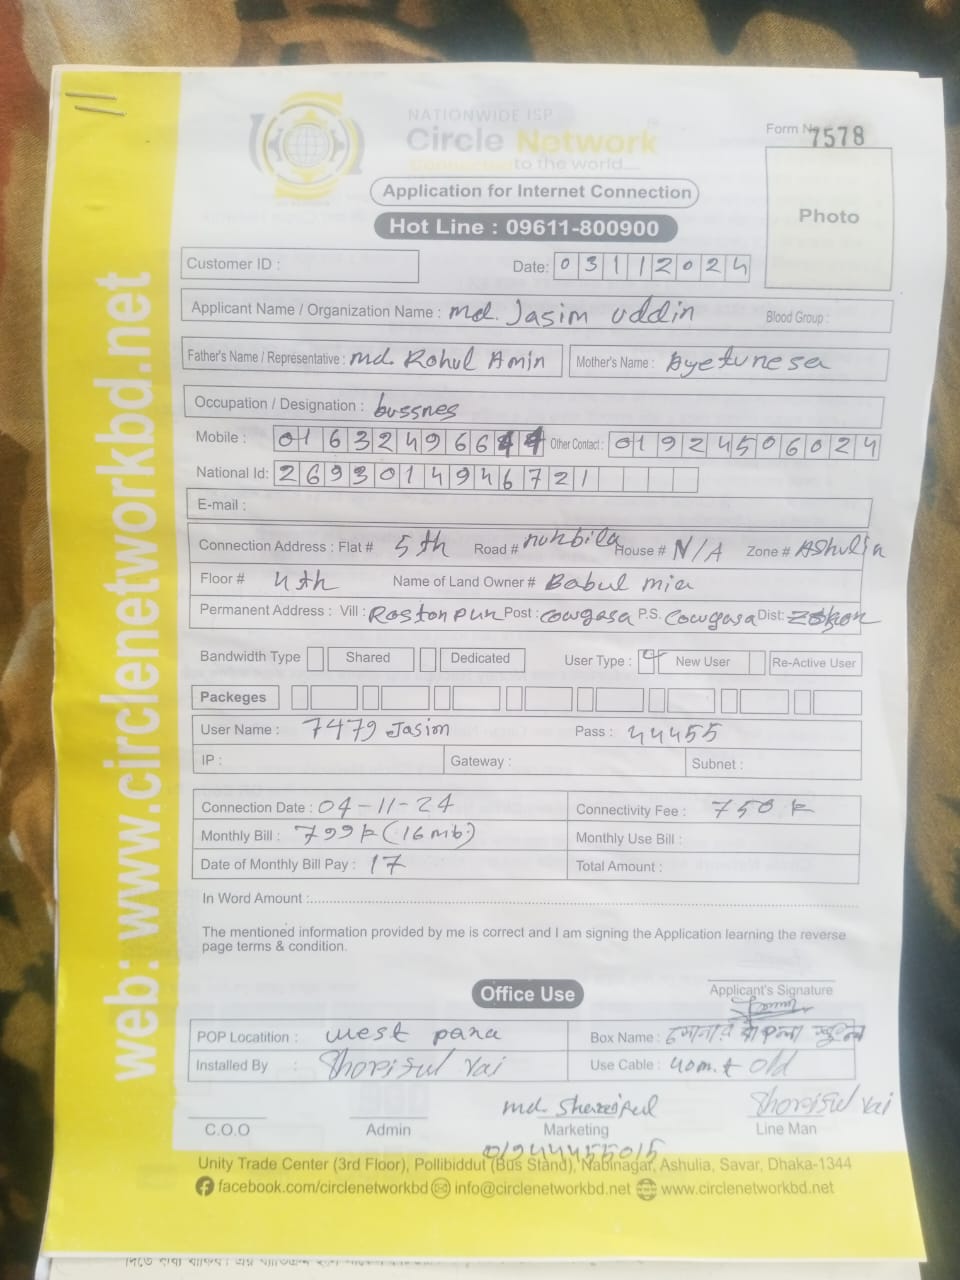 NATIONWIDE ISP
Circle Network
Connected to the world....
Form No 7578
Photo
Application for Internet Connection
Hot Line : 09611-800900
Customer ID :
Date: 03112024
Applicant Name / Organization Name : md. Jasim uddin Blood Group :
Father's Name / Representative : md. Rohul Amin Mother's Name : Ayetunesa
Occupation / Designation : bussnes
Mobile : 016324966 Other Contact : 01924506024
National Id: 2693014946721
E-mail :
Connection Address : Flat # 5th Road # nuhbila House # N/A Zone # AShulia
Floor # 4th Name of Land Owner # Babul mia
Permanent Address : Vill : Rostonpun Post : cowgasa P.S. Cowgasa Dist:
Bandwidth Type Shared Dedicated User Type : New User Re-Active User
Packeges
User Name : 7479 Jasim Pass : 44455
IP : Gateway : Subnet :
Connection Date : 04-11-24 Connectivity Fee : 750
Monthly Bill : 799 (16 mb) Monthly Use Bill :
Date of Monthly Bill Pay : 17 Total Amount :
In Word Amount :
The mentioned information provided by me is correct and I am signing the Application learning the reverse
page terms & condition.
Applicant's Signature
Office Use
POP Locatition : west para Box Name :
Installed By Shorisful Vai Use Cable : 40m. old
C.O.O
Admin
md. Shareiful
Marketing
01944455015
Shorisful Vai
Line Man
Unity Trade Center (3rd Floor), Pollibiddut (Bus Stand), Nabinagar, Ashulia, Savar, Dhaka-1344
facebook.com/circlenetworkbd info@circlenetworkbd.net www.circlenetworkbd.net
web: www.circlenetworkbd.net